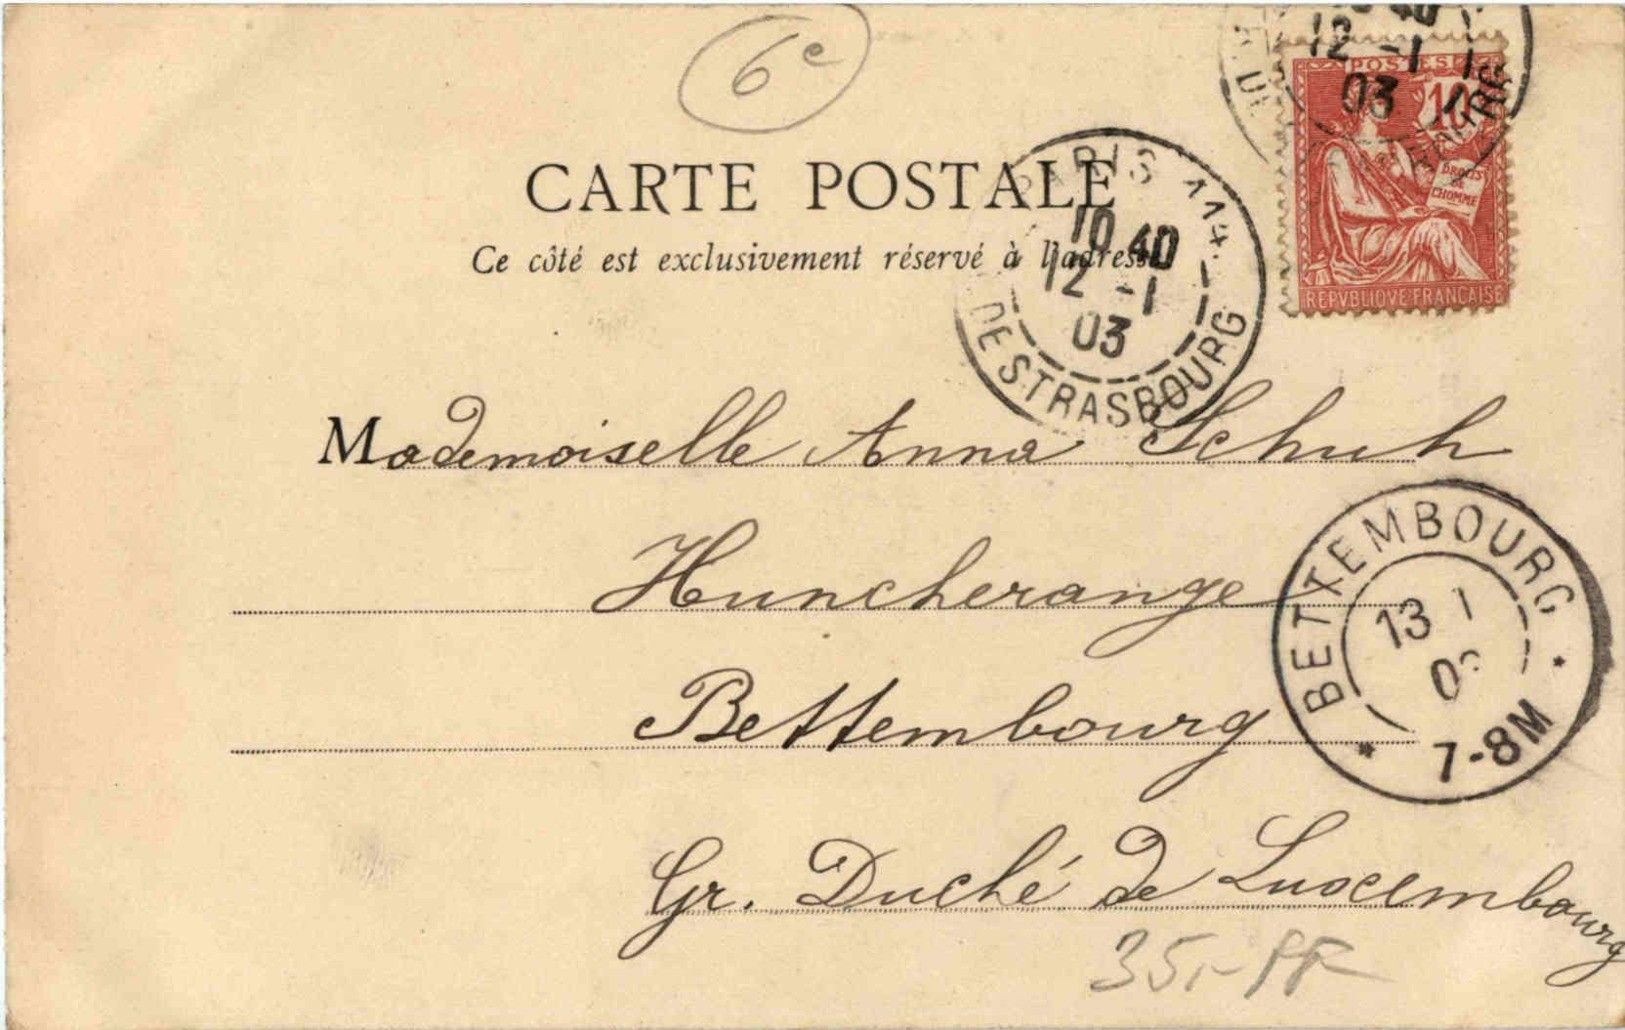 6e
CARTE POSTALE
Ce côté est exclusivement réservé à l'adresse
PARIS 114
10 40
12 -1
03
DE STRASBOURG
40
12 -1
03
POSTES
10
DROITS
DE
L'HOMME
REPVBLIQVE FRANÇAISE
Mademoiselle Anna Schuh
Huncherange
Bettembourg
Gr. Duché de Luxembourg
BETTEMBOURG
13 1
7-8M
35,-